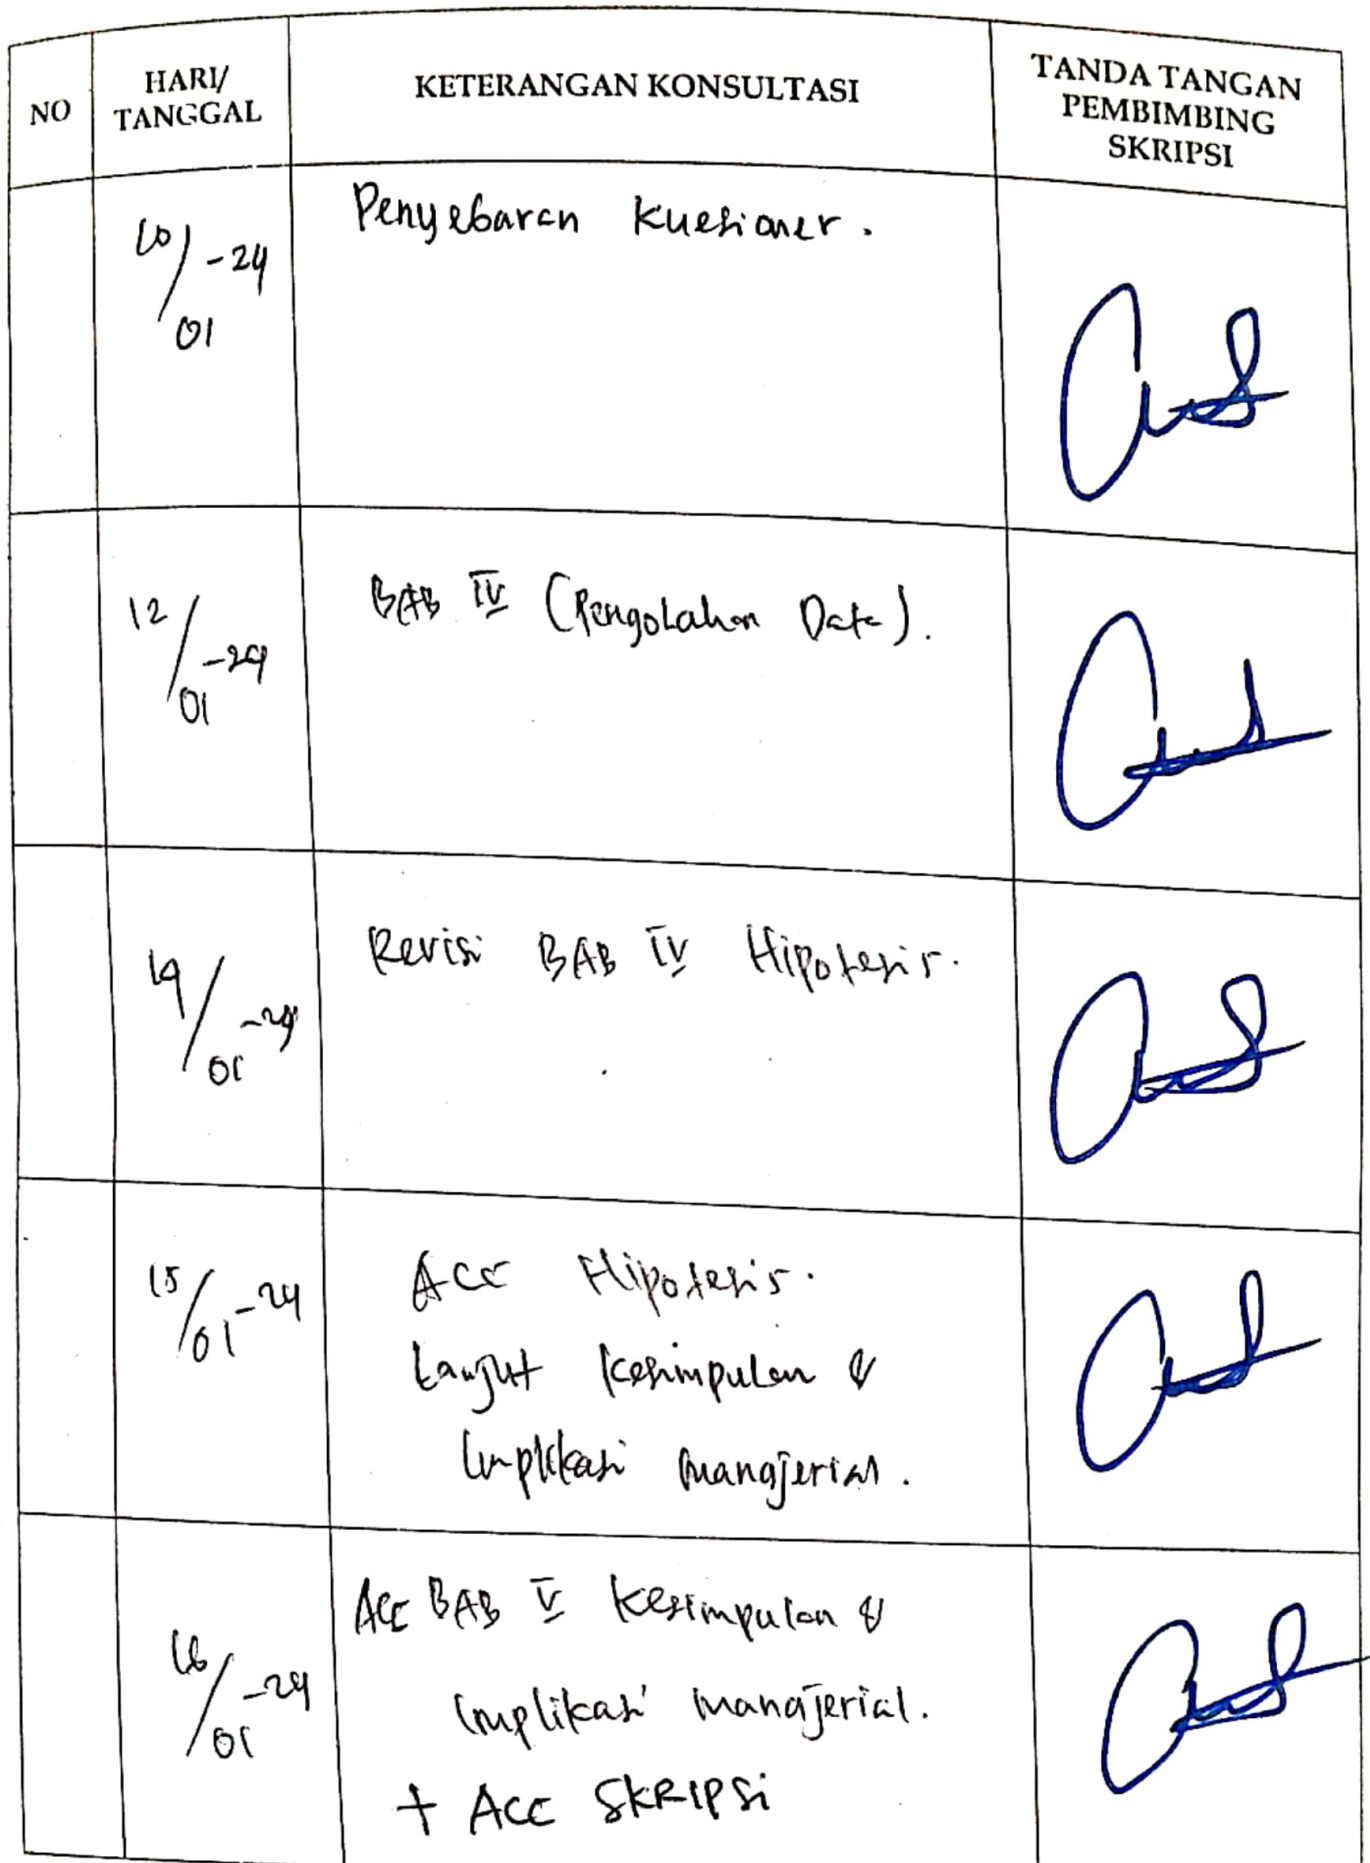 NO
HARI/
TANGGAL
KETERANGAN KONSULTASI
TANDA TANGAN
PEMBIMBING
SKRIPSI
10/01-24
Penyebaran Kuesioner.
12/01-24
BAB IV (Pengolahan Data).
14/01-24
Revisi BAB IV Hipotesis.
15/01-24
Acc Hipotesis.
Lanjut Kesimpulan &
Implikasi manajerial.
16/01-24
Acc BAB V Kesimpulan &
Implikasi manajerial.
+ ACC SKRIPSI